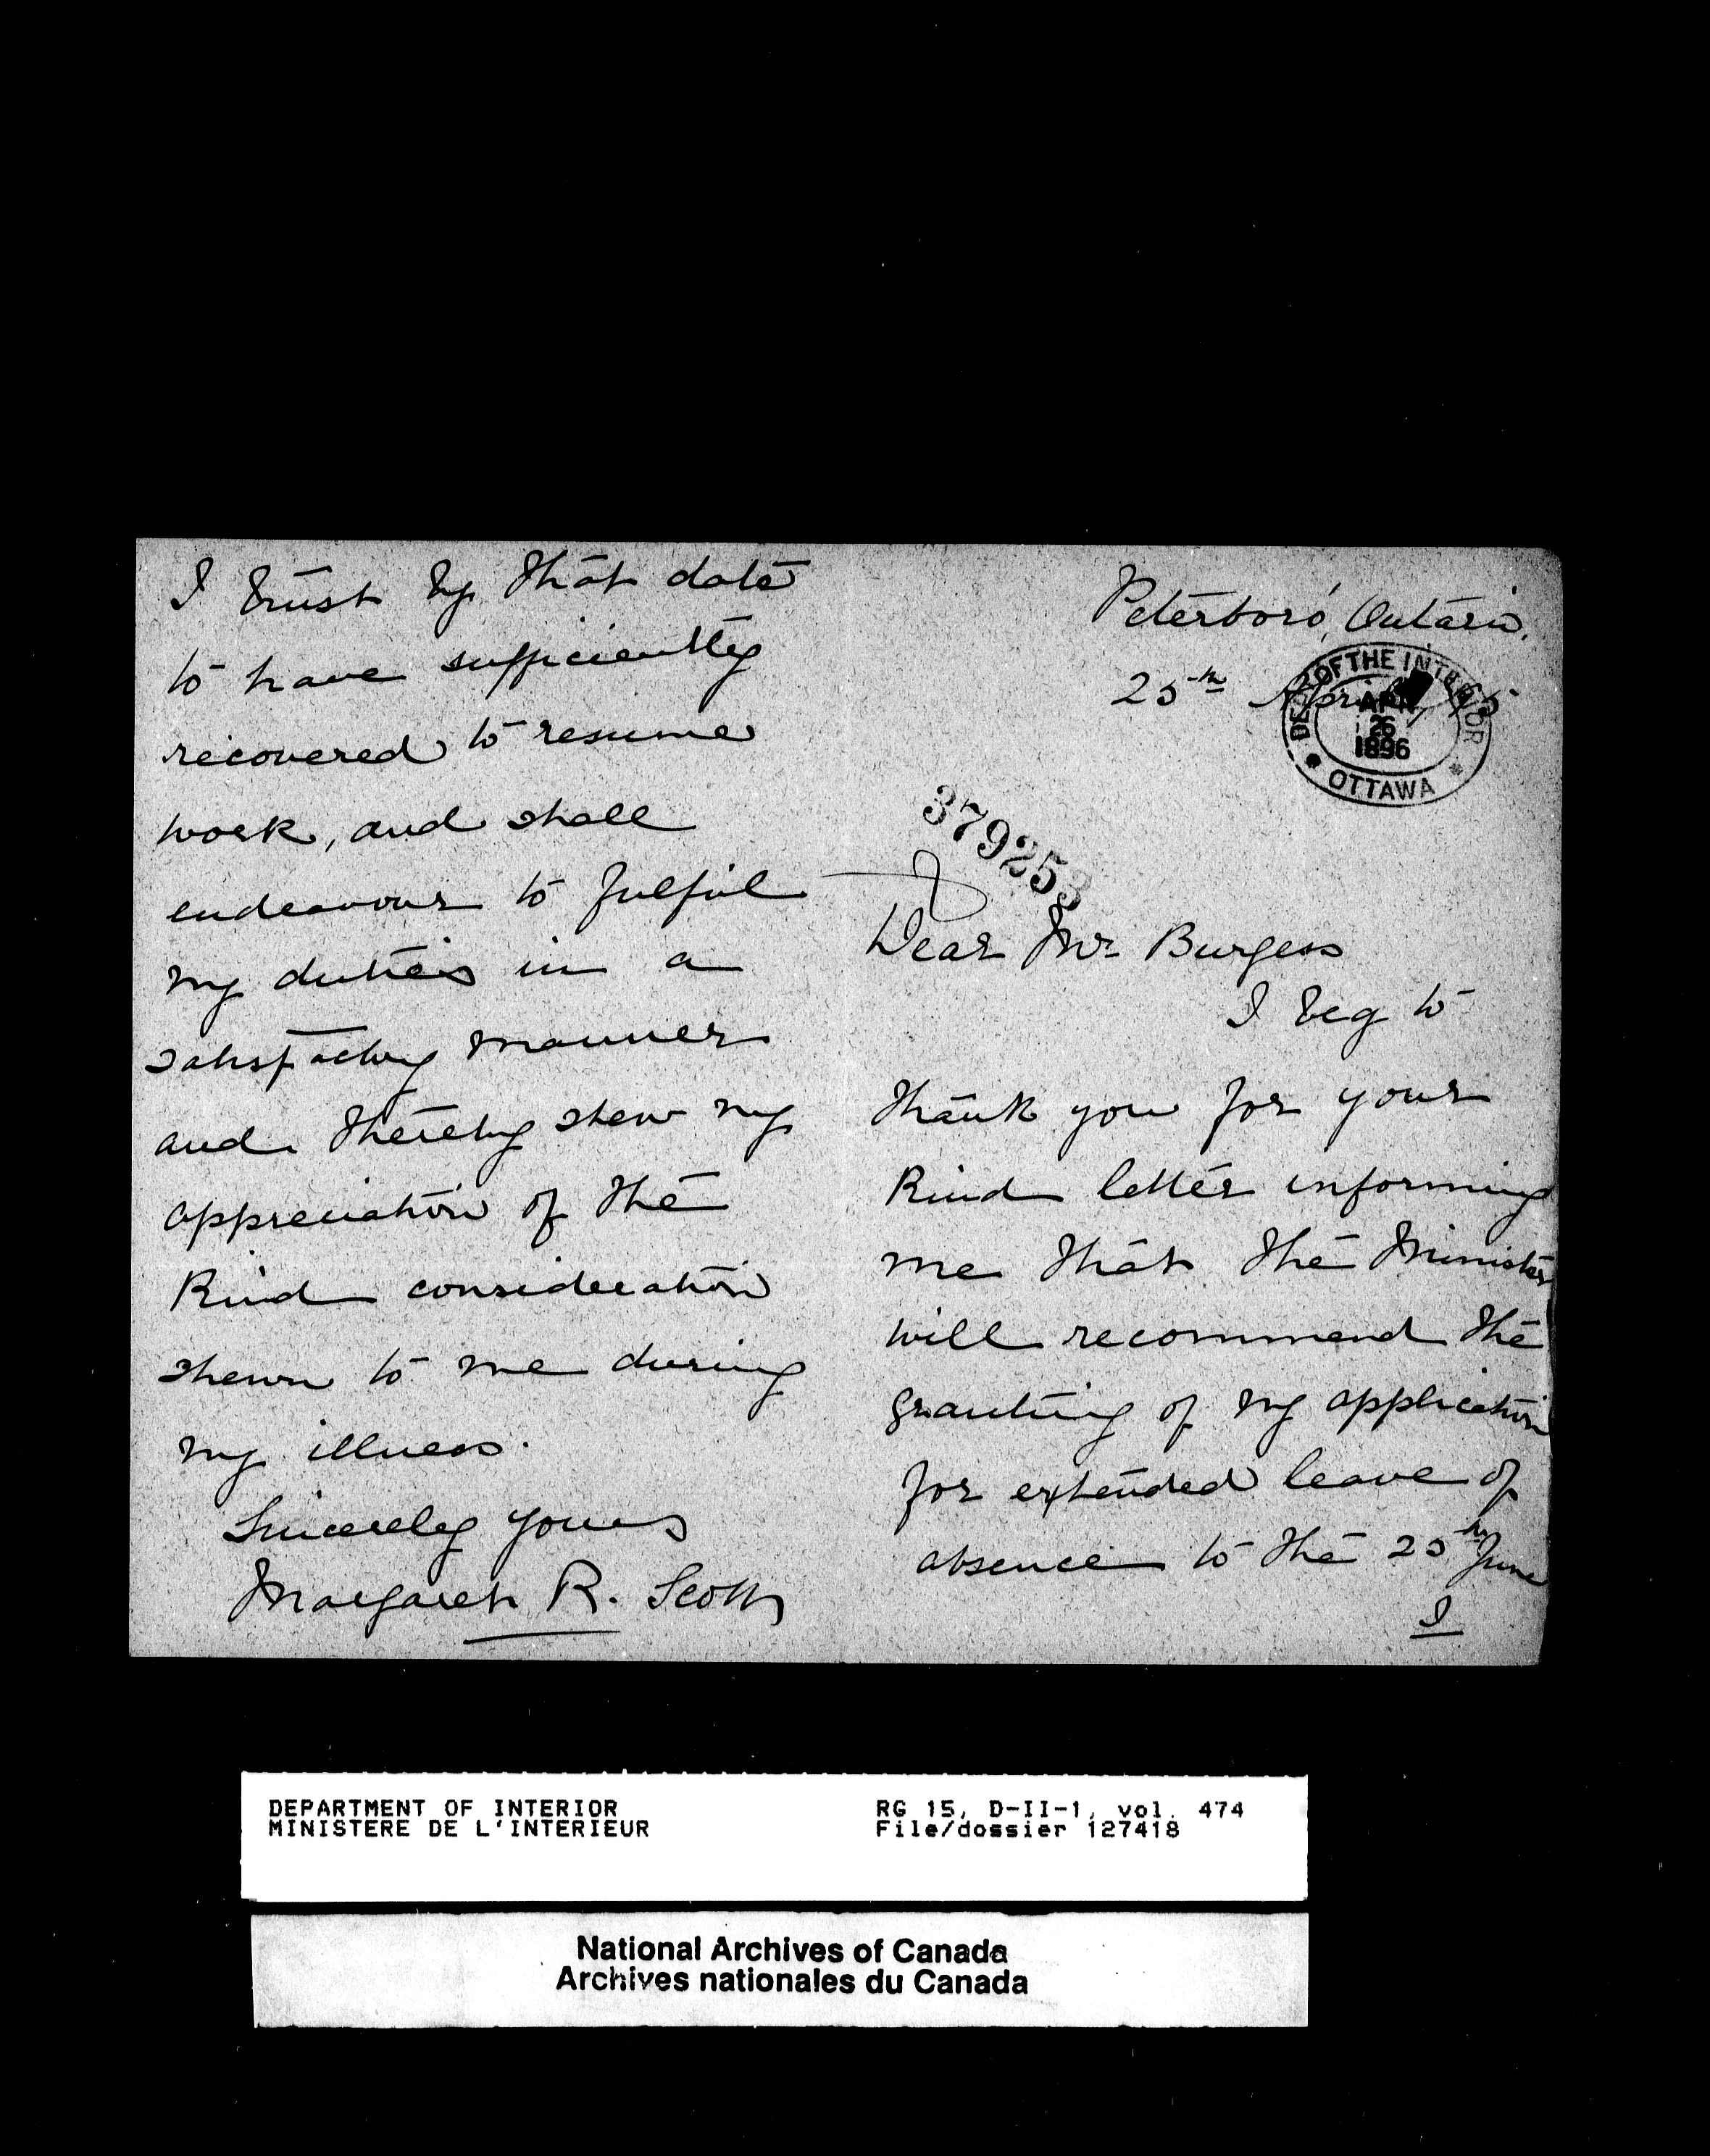 Peterboro', Ontario.
25th April, 95
DEPT OF THE INTERIOR
APR
26
1896
OTTAWA
379253
Dear Mr Burgess
I beg to
thank you for your
kind letter informing
me that the Minister
will recommend the
granting of my application
for extended leave of
absence to the 25th June
I
I trust by that date
to have sufficiently
recovered to resume
work, and shall
endeavour to fulfil
my duties in a
satisfactory manner
and thereby shew my
appreciation of the
kind consideration
shewn to me during
my illness.
Sincerely yours
Margaret R. Scott
DEPARTMENT OF INTERIOR
MINISTERE DE L'INTERIEUR
RG 15, D-II-1, vol. 474
File/dossier 127418
National Archives of Canada
Archives nationales du Canada